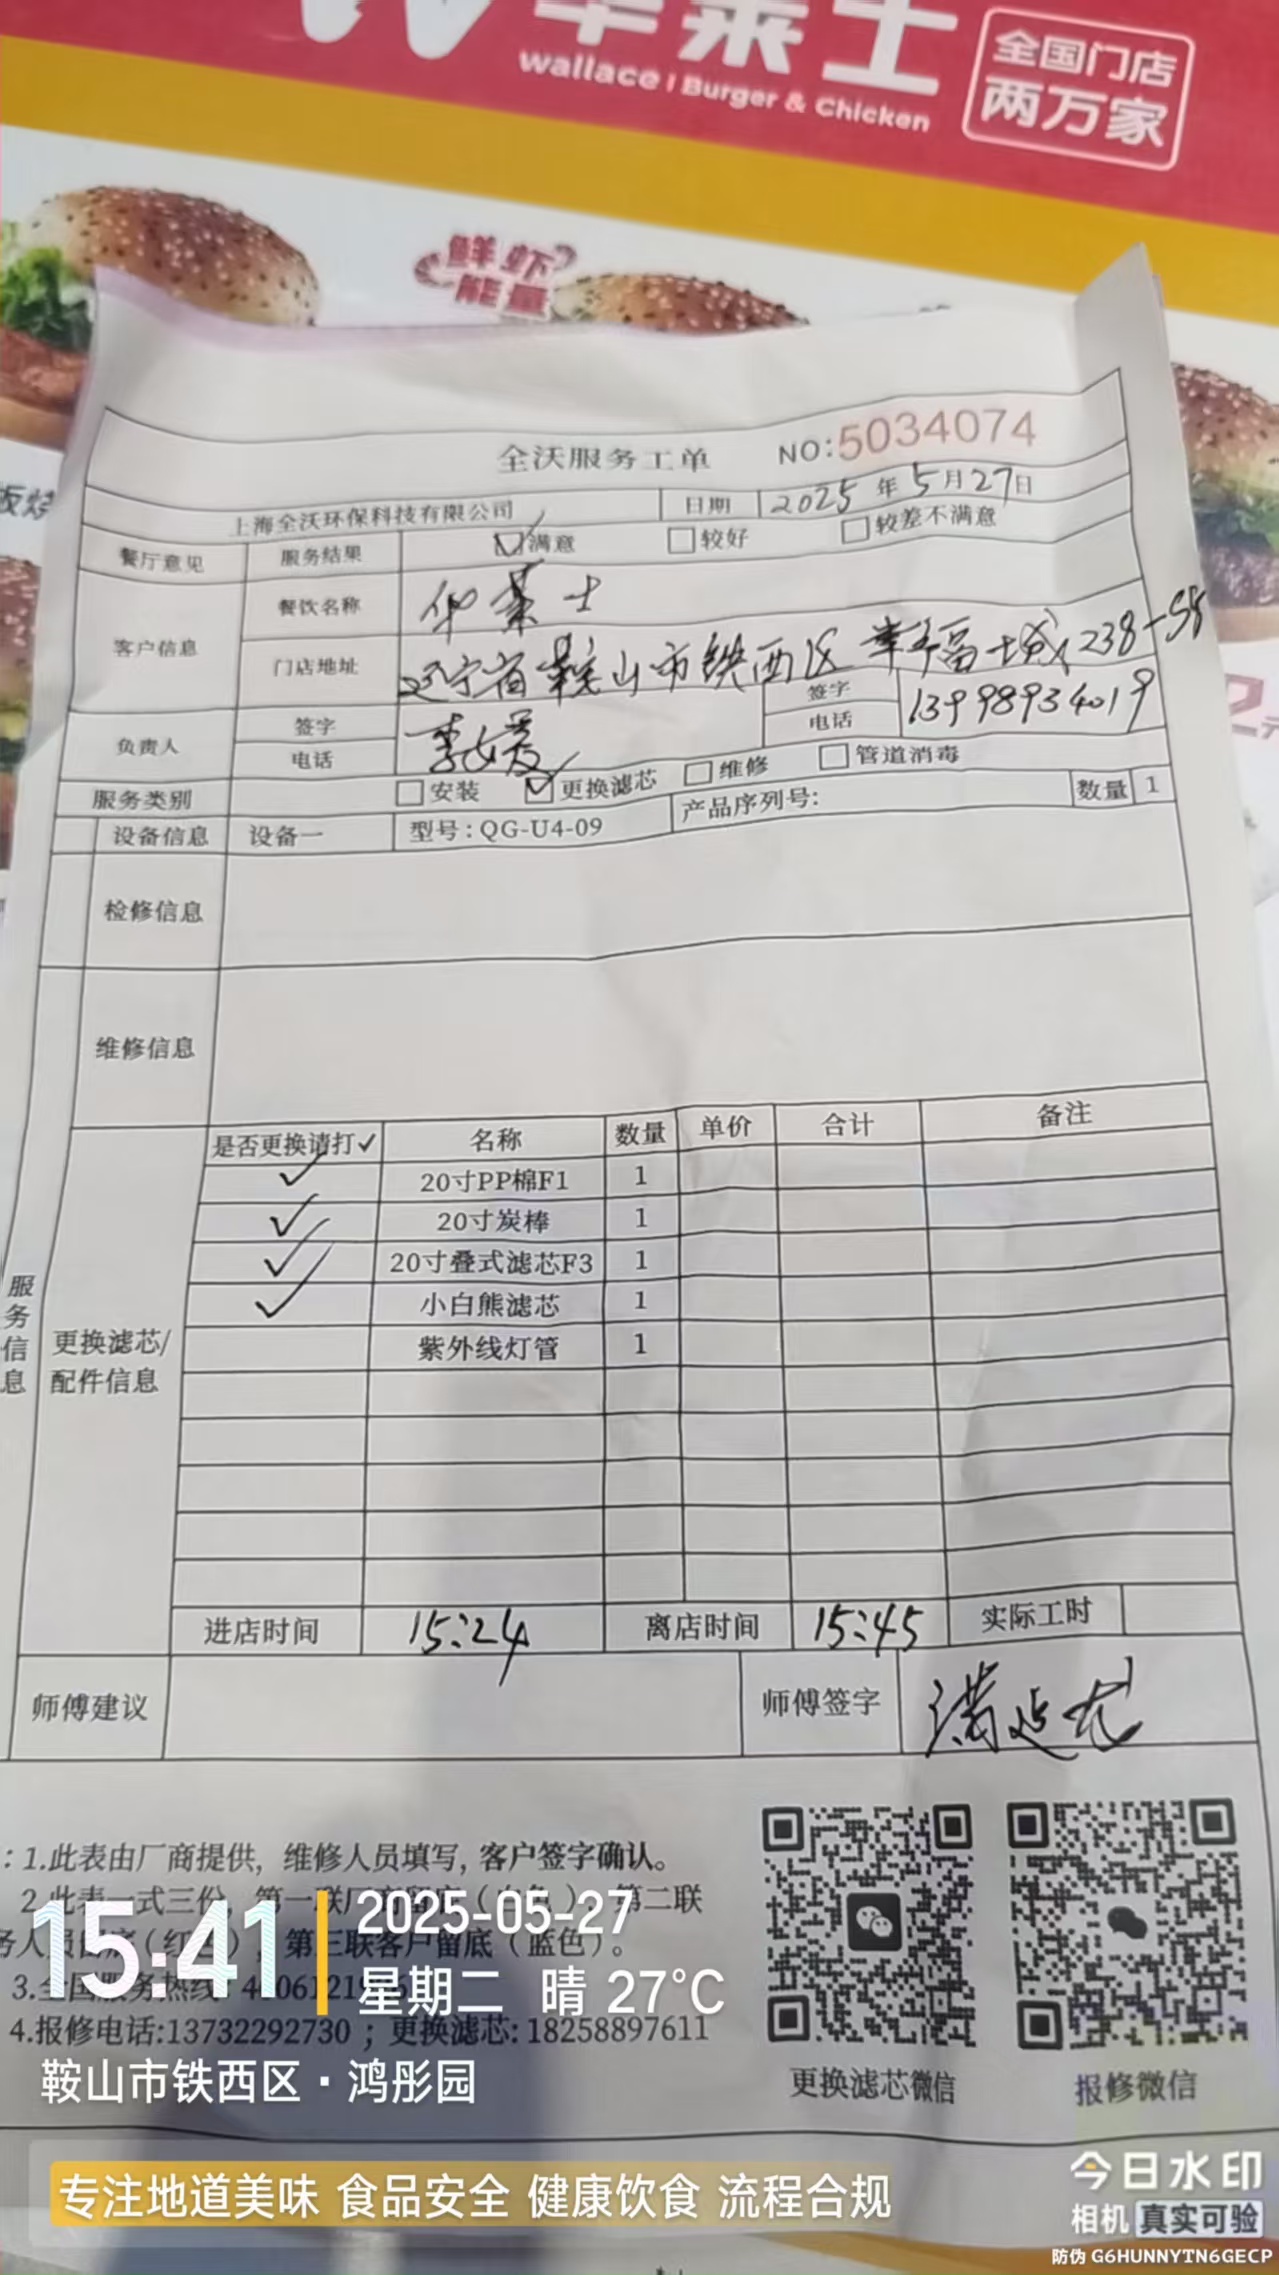 华莱士
wallace | Burger & Chicken
全国门店
两万家
鲜虾
能量
全沃服务工单 NO:5034074
上海全沃环保科技有限公司 日期 2025年5月27日
餐厅意见 服务结果 满意 较好 较差不满意
客户信息 餐饮名称 华莱士
门店地址 辽宁省鞍山市铁西区幸福城238-58
负责人 签字 签字
电话 电话 13998934019
服务类别 安装 更换滤芯 维修 管道消毒
设备信息 设备一 型号:QG-U4-09 产品序列号: 数量 1
检修信息
维修信息
服务信息
更换滤芯/配件信息
是否更换请打✓ 名称 数量 单价 合计 备注
✓ 20寸PP棉F1 1
✓ 20寸炭棒 1
✓ 20寸叠式滤芯F3 1
✓ 小白熊滤芯 1
紫外线灯管 1
进店时间 15:24 离店时间 15:45 实际工时
师傅建议 师傅签字
:1.此表由厂商提供, 维修人员填写, 客户签字确认。
2.此表一式三份, 第一联厂商留底(白色), 第二联
务人员留底(红色), 第三联客户留底(蓝色)。
3.全国服务热线:
4.报修电话:13732292730 ; 更换滤芯: 18258897611
更换滤芯微信 报修微信
15:41
2025-05-27
星期二 晴 27°C
鞍山市铁西区·鸿彤园
专注地道美味 食品安全 健康饮食 流程合规
今日水印
相机 真实可验
防伪 G6HUNNYTN6GECP